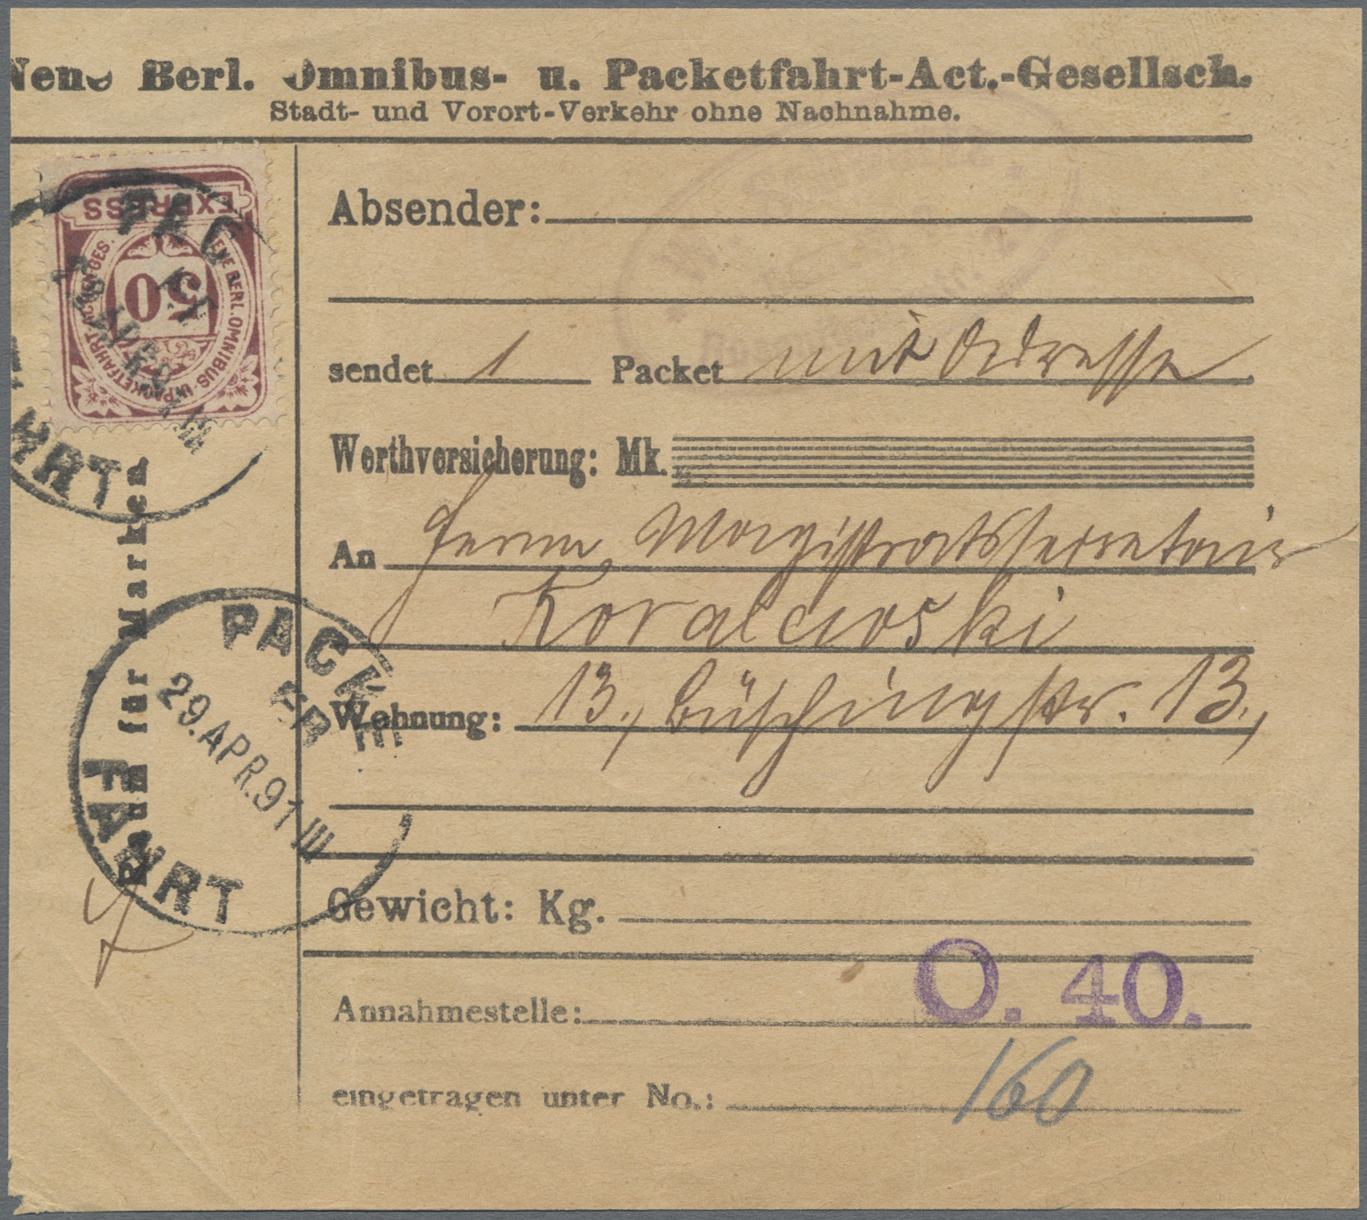 Neue Berl. Omnibus- u. Packetfahrt-Act.-Gesellsch.
Stadt- und Vorort-Verkehr ohne Nachnahme.
EXPRESS
50
NEUE BERL. OMNIBUS- U. PACKETFAHRT-ACTIEN-GES.
Raum für Marken
PACKET
FAHRT
29.APR.97 III
Absender:
sendet 1 Packet mit Adresse
Werthversicherung: Mk.
An Herrn Magistratssecretair
Kovalewski
Wohnung: 13, Büschingstr. 13,
Gewicht: Kg.
Annahmestelle: O. 40.
eingetragen unter No.: 160